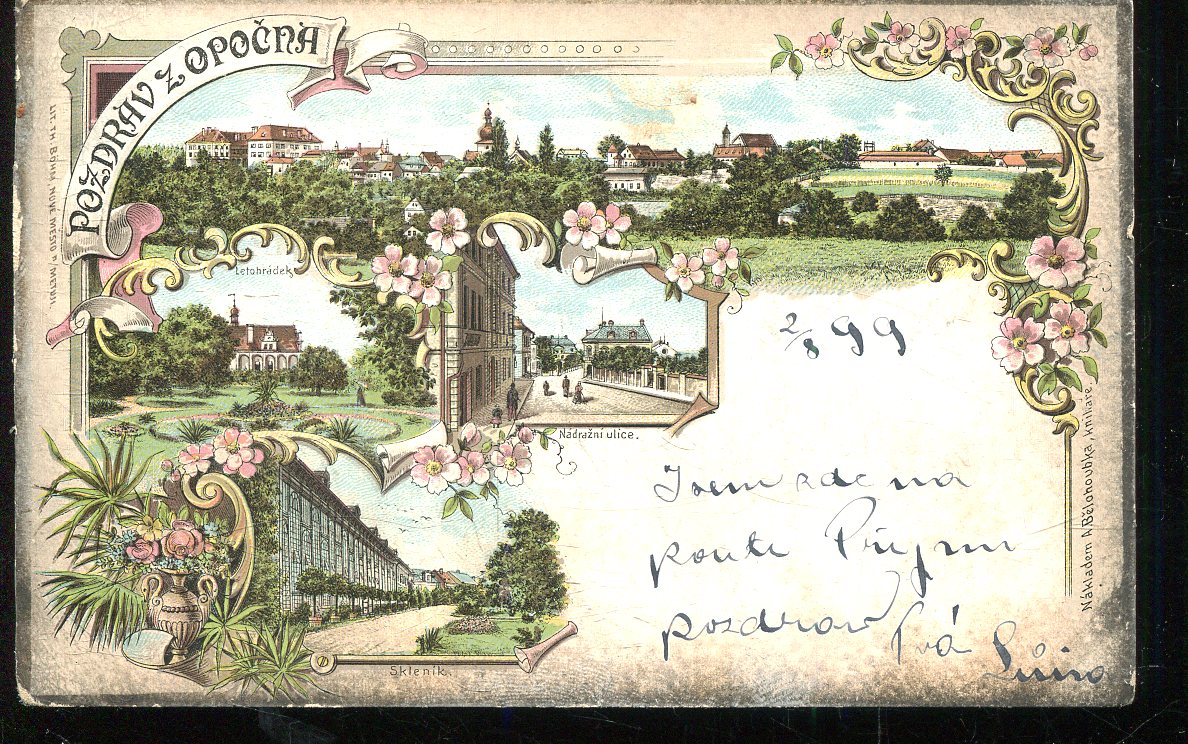 POZDRAV Z OPOČNA
LIT. TH. BÖHM NOVÉ MĚSTO n. METUJÍ.
Letohrádek
Nádražní ulice.
Skleník.
2/8 99
Jsem zde na
pouti Přijmi
pozdrav Tvá
Nákladem A. Bělohoubka, knihaře.